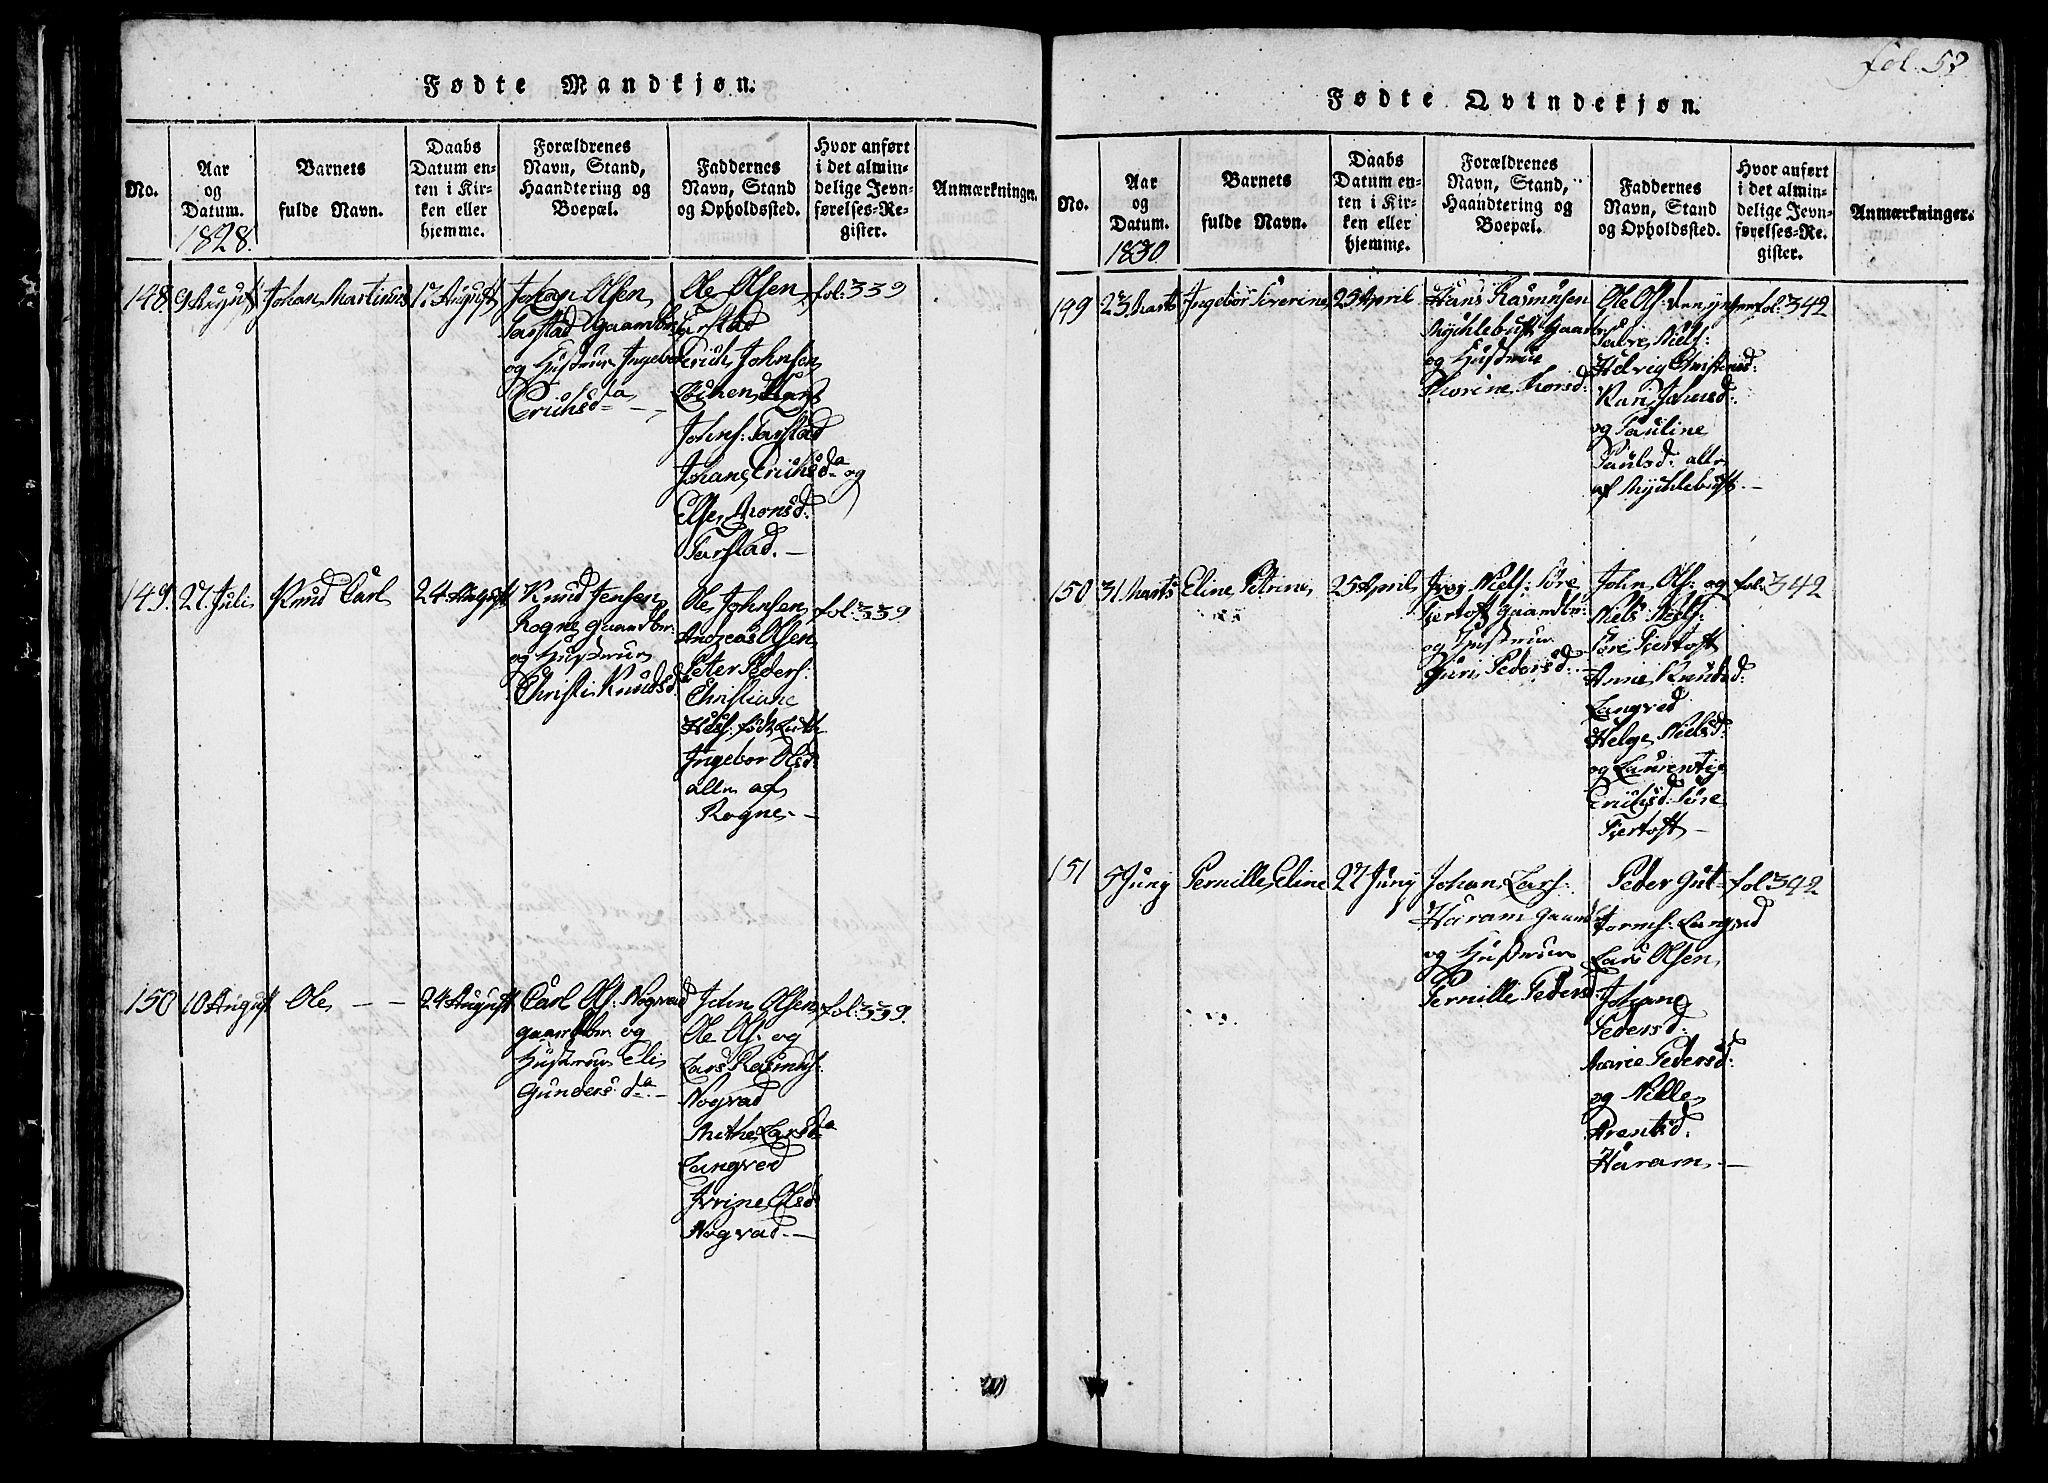 Fødte Mandkjøn.
No.
Aar
og
Datum.
1828.
Barnets
fulde Navn.
Daabs
Datum en-
ten i Kir-
ken eller
hjemme.
Forældrenes
Navn, Stand,
Haandtering og
Boepæl.
Faddernes
Navn, Stand
og Opholdssted.
Hvor anført
i det almin-
delige Jevn-
førelses-Re-
gister.
Anmærkninger.
148
9 August
Johan Martinus
17 August
Johan Olsen
Tarstad Gaardbr
og Hustrue Ingebor
Erichsda –
Ole Olsen
Tarstad
Erich Johnsen
Hans
Johns: Tarstad
Johane Erichsda og
Else Aronsd:
Tarstad. –
fol: 339
149.
27 Juli
Knud Carl
24 August
Knud Jensen
Rogne gaardbr.
og Hustrue
Christi Knudsd
Ole Johnsen
Andreas Olsen
Peter Peders:
Christiane
født
Ingebor Olsd:
alle af
Rogne. –
fol: 339
150
10 August
Ole – –
24 August
Carl Ols: Nogvad
gaardbr. og
Hustrue Eli
Gunders da. –
John Olsen
Ole Ols: og
Lars Rasmus:
Nogvad
Mithe Larsda
Langved
Ivrine Olsd
Nogvad. –
fol: 339.
fol. 57
Fødte Qvindekjøn.
No.
Aar
og
Datum.
1830.
Barnets
fulde Navn.
Daabs
Datum en-
ten i Kir-
ken eller
hjemme.
Forældrenes
Navn, Stand,
Haandtering og
Boepæl.
Faddernes
Navn, Stand
og Opholdssted.
Hvor anført
i det almin-
delige Jevn-
førelses-Re-
gister.
Anmærkninger.
149
23 Marts
Ingebor Siverine
25 April
Hans Rasmusen
Mychlebust Gaardbr
og Hustrue
Thorine Thorsd:
Ole Ols:
Niels:
Helvig Christensd:
Kari
og Pauline
Paulsd: alle
af Mychlebust. –
fol: 342
150
31 Marts
Eline Petrine
25 April
Iver Niels: Søre
Fjertoft Gaardbr:
og Hustrue
Guri Pedersd: –
John Ols: og
Niels Niels:
Søre Fjertoft
Anne Knudsd:
Langved
Helge Nielsd:
og Laurentze
Erichsd: Søre
Fjertoft –
fol: 342
151
5 Juny
Pernille Eline
27 Juny
Johan Lars:
Haram gaardbr
og Hustrue
Pernille Pedersd:
Peder Gut-
torms: Langved
Lars Olsen
Johane
Pedersd:
Marie Pedersd:
og Nille
Arentsd:
Haram –
fol 342